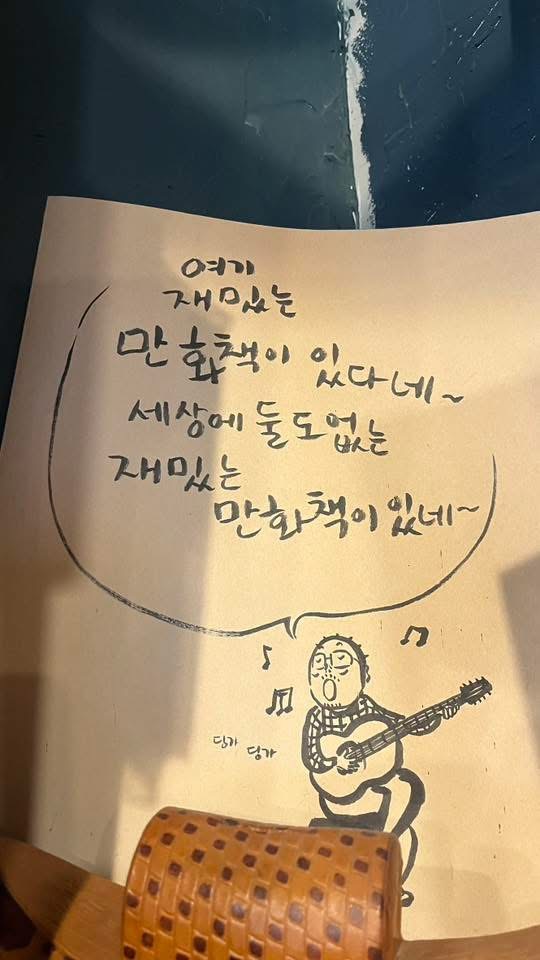 여기
재밌는
만화책이 있다네~
세상에 둘도없는
재밌는
만화책이 있네~
딩가 딩가